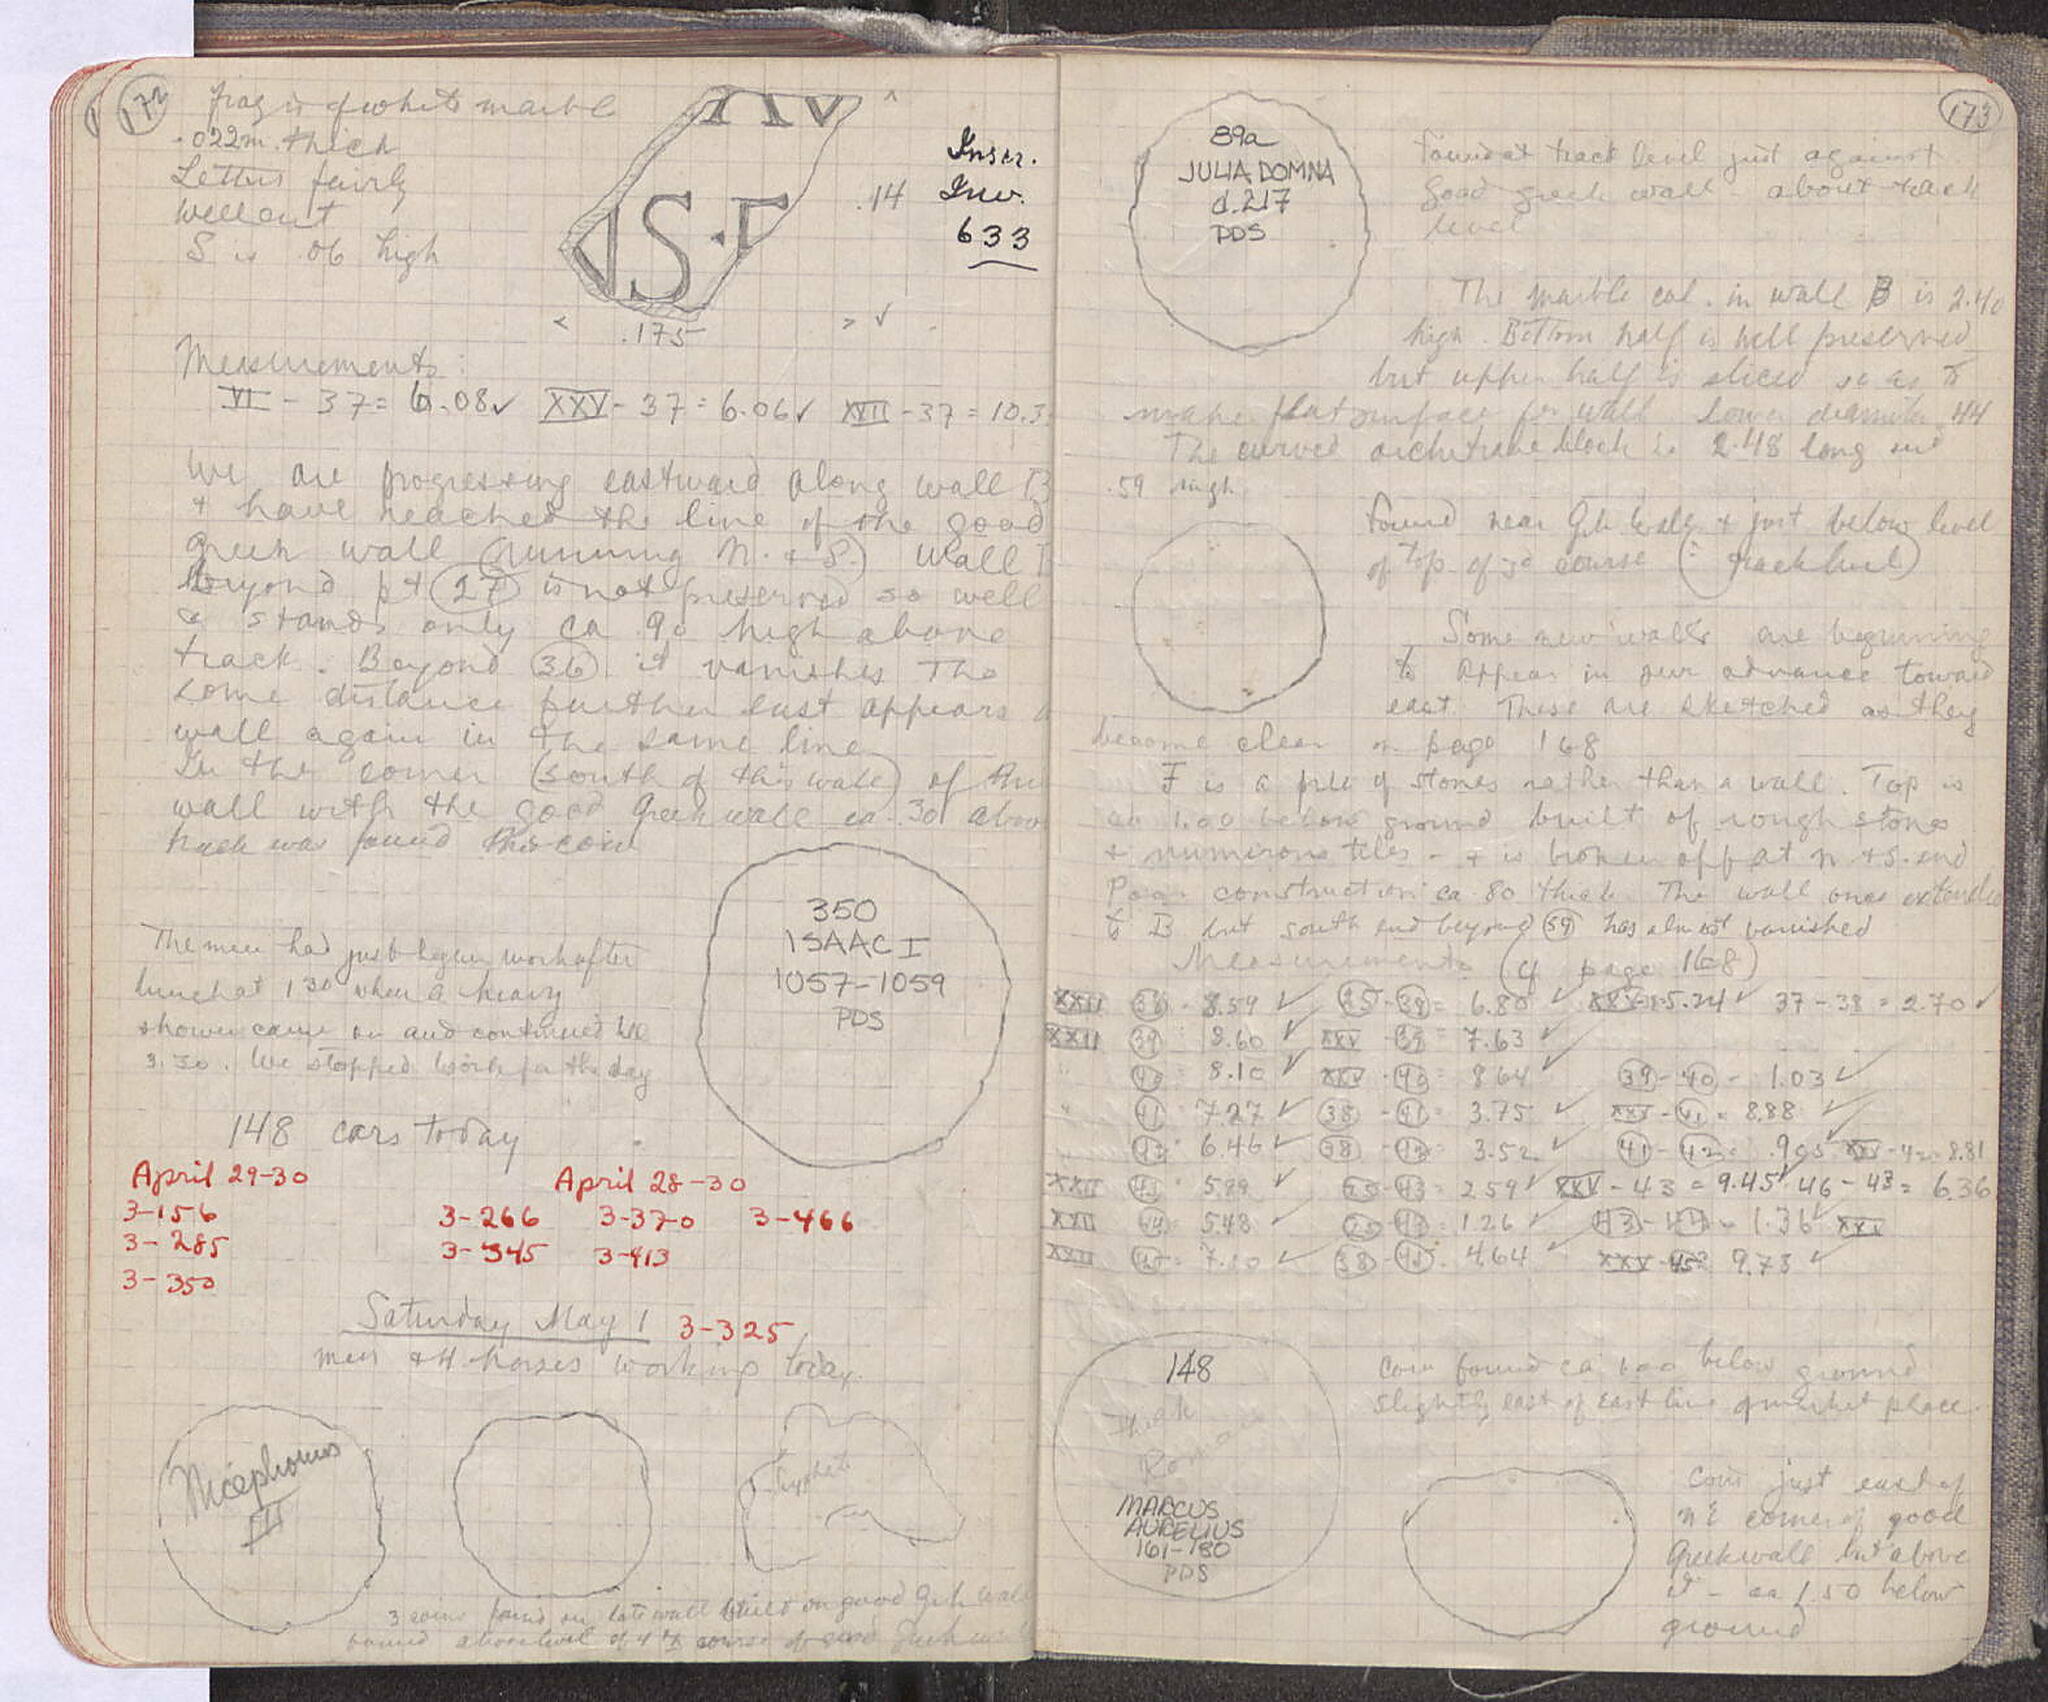 172
frag is of white marble
.022m. thick
Letters fairly
well cut
S is .06 high
IV
VS·F
.14
.175
Inscr.
Inv.
633
Measurements:
VI - 37 = 6.08 ✓ XXV - 37 = 6.06 ✓ XVII - 37 = 10.3
We are progressing eastward along wall B
+ have reached the line of the good
Greek wall (running N. + S.) Wall
beyond pt (27) is not preserved so well
& stands only ca .90 high above
track. Beyond (36) it vanishes Tho
some distance further east appears a
wall again in the same line
In the corner (south of this wall) of this
wall with the good Greek wall ca .30 above
track was found this coin
350
ISAAC I
1057-1059
PDS
The men had just begun work after
lunch at 1 30 when a heavy
shower came on and continued till
3.30. We stopped work for the day
148 cars today
April 29-30
3-156
3-285
3-350
April 28-30
3-266 3-370 3-466
3-345 3-413
Saturday May 1 3-325
men + 4 horses working today.
Nicephorus
III
3 coins found on late wall built on good Grk wall
found above level of 4th course of good Greek wall
173
89a
JULIA DOMNA
d.217
PDS
Found at track level just against
good Greek wall about track
level
The marble col. in wall B is 2.40
high. Bottom half is well preserved
but upper half is sliced so as to
make flat surface for wall lower diameter .44
The curved architrave block is 2.48 long and
.59 high
Found near Grk wall + just below level
of top of 3d course (= track level)
Some new walls are beginning
to appear in our advance toward
east These are sketched as they
become clear on page 168
F is a pile of stones rather than a wall. Top is
ca 1.00 below ground built of rough stones
+ numerous tiles - + is broken off at n + s. end
Poor construction ca .80 thick. The wall once extended
to B but south end beyond (59) has almost vanished
Measurements (cf page 168)
XXII 38 - 8.59 ✓ 35 - 38 = 6.80 ✓ 5.24 ✓ 37 - 38 = 2.70 ✓
XXII 39 : 8.60 ✓ XXV - 39 = 7.63 ✓
" 40 : 8.10 ✓ XXV - 40 = 8.64 ✓ 39 - 40 - 1.03 ✓
" 41 = 7.27 ✓ 38 - 41 = 3.75 ✓ XXV - 41 = 8.88 ✓
" 42 = 6.46 ✓ 38 - 42 = 3.52 ✓ 41 - 42 = .905 ✓ XXV - 42 = 8.81
XXII 43 = 5.89 ✓ 2.59 ✓ XXV - 43 = 9.45 ✓ 46 - 43 = 6.36
XXII 44 = 5.48 ✓ 1.26 ✓ 43 - 44 = 1.36 ✓ XXV
XXII 45 = 7.10 ✓ 38 - 45 = 4.64 ✓ XXV - 45 = 9.73 ✓
148
Thick
Roman
MARCUS
AURELIUS
161-180
PDS
Coin found ca 1.00 below ground
slightly east of east line of market place.
Coin just east of
NE corner of good
Greek wall but above
it - ca 1.50 below
ground